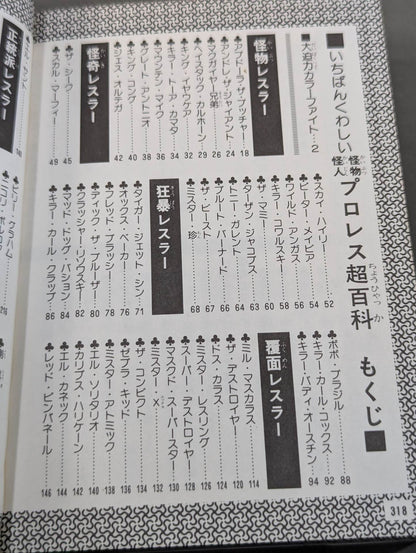 ■いちばんくわしい怪物怪人プロレス超百科 もくじ■
■大迫力カラーファイト…2
怪物レスラー
♣アブドーラ・ザ・ブッチャー…18
♣アンドレ・ザ・ジャイアント…24
♣マクガイヤ兄弟…26
♣ヘイスタック・カルホーン…29
♣キング・イヤウケア…31
♣キラー・トーア・カマタ…34
♣マウンテン・マイク…36
♣グレート・アントニオ…38
♣キング・コング…40
♣ジェス・オルテガ…42
怪奇レスラー
♣ザ・シーク…45
♣スカル・マーフィー…49
♣スカイ・ハイリー…52
♣ピーター・メイビア…54
♣ワイルド・アンガス…56
♣キラー・コワルスキー…58
♣ザ・マミー…60
♣ターザン・ジャコブス…61
♣トニー・ガレント…64
♣ブルート・バーナード…65
♣ザ・ビースト…67
♣ミスター・珍…68
狂暴レスラー
♣タイガー・ジェット・シン…71
♣オックス・ベーカー…74
♣フレッド・ブラッシー…78
♣ディック・ザ・ブルーザー…80
♣クラッシャー・リソワスキー…
♣マッド・ドッグ・バション…84
♣キラー・カール・クラップ…86
♣ボボ・ブラジル…88
♣キラー・カール・コックス…92
♣キラー・バディ・オースチン…94
覆面レスラー
♣ミル・マスカラス…114
♣ザ・デストロイヤー…120
♣ドス・カラス…124
♣ミスター・レスリング…126
♣スーパー・デストロイヤー…128
♣マスクド・スーパースター…130
♣ミスター・X…132
♣ザ・コンビクト…134
♣ゼブラ・キッド…136
♣ミスター・アトミック…138
♣エル・ソリタリオ…140
♣カリプス・ハリケーン…142
♣エル・カネック…144
♣レッド・ピンパネール…146
318
正統派レスラー